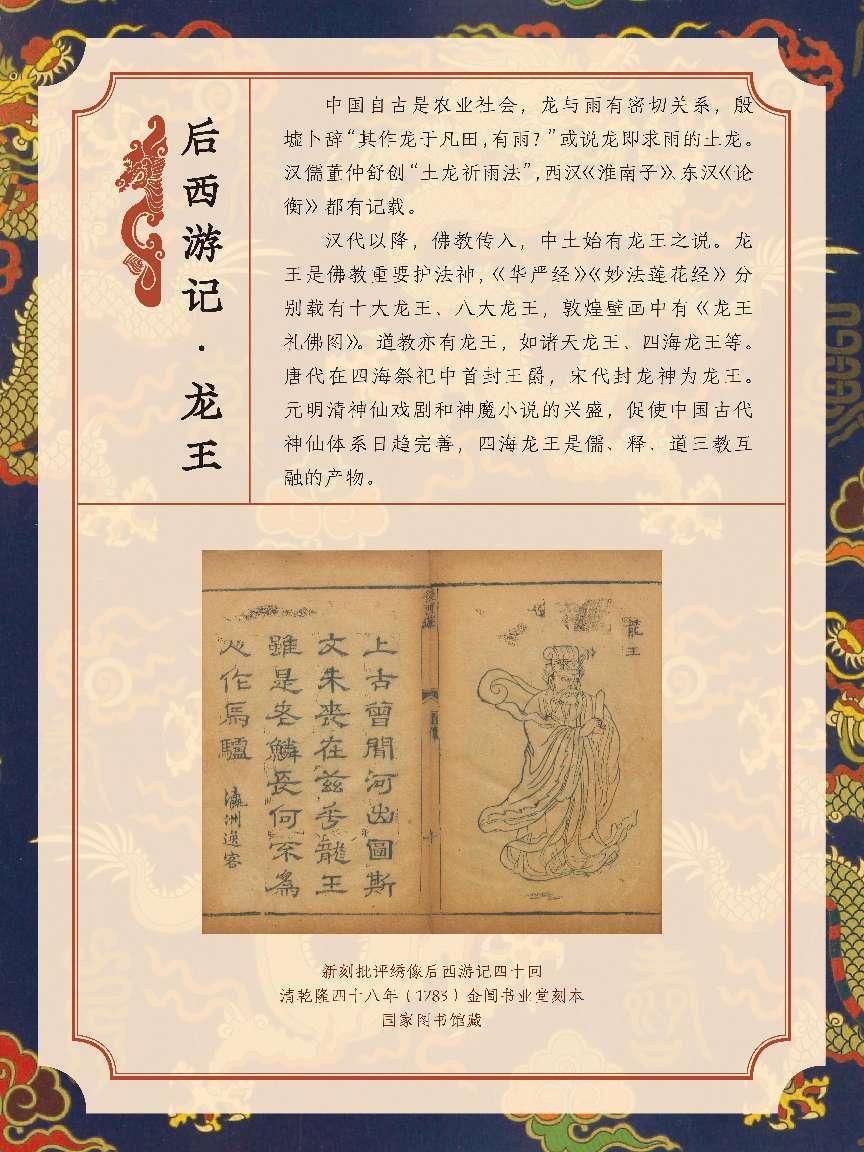 后西游记·龙王
中国自古是农业社会，龙与雨有密切关系，殷
墟卜辞“其作龙于凡田，有雨？”或说龙即求雨的土龙。
汉儒董仲舒创“土龙祈雨法”，西汉《淮南子》、东汉《论
衡》都有记载。
汉代以降，佛教传入，中土始有龙王之说。龙
王是佛教重要护法神，《华严经》《妙法莲花经》分
别载有十大龙王、八大龙王，敦煌壁画中有《龙王
礼佛图》。道教亦有龙王，如诸天龙王、四海龙王等。
唐代在四海祭祀中首封王爵，宋代封龙神为龙王。
元明清神仙戏剧和神魔小说的兴盛，促使中国古代
神仙体系日趋完善，四海龙王是儒、释、道三教互
融的产物。
龍王
上古曾聞河出圖斯
文未喪在兹乎龍王
雖是名鱗長何不為
人作馬驢
瀛洲逸客
新刻批评绣像后西游记四十回
清乾隆四十八年（1783）金阊书业堂刻本
国家图书馆藏